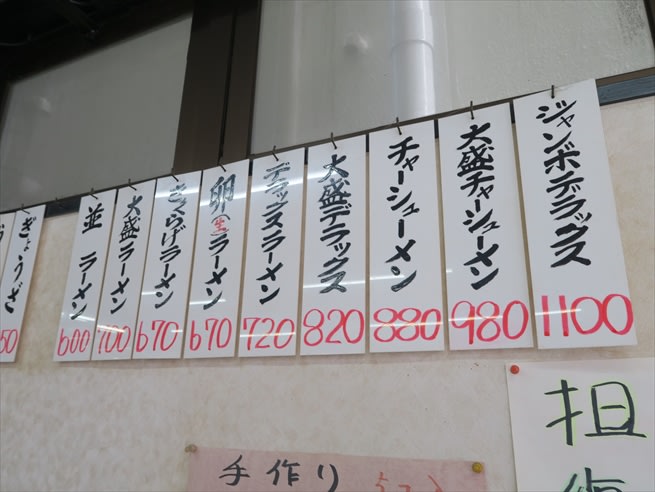 ジャンボデラックス
1100
大盛チャーシューメン
980
チャーシューメン
880
大盛デラックス
820
デラックスラーメン
720
卵(生)ラーメン
670
きくらげラーメン
670
大盛ラーメン
700
並 ラーメン
600
ぎょうざ
50
手作り
担